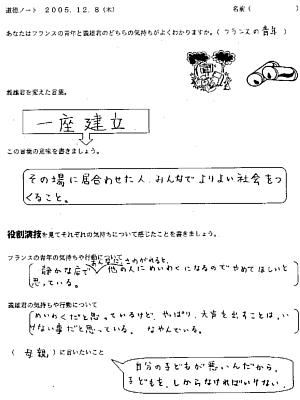 道徳ノート 2005.12.8(木) 名前( )
あなたはフランスの青年と義雄君のどちらの気持ちがよくわかりますか。(フランスの青年)
義雄君を変えた言葉。
一座建立
この言葉の意味を書きましょう。
その場に居合わせた人、みんなでよりよい社会をつ
くること。
役割演技を見てそれぞれの気持ちについて感じたことを書きましょう。
フランスの青年の気持ちや行動について
あんなに、さわがれると、
静かな店で 他の人にめいわくになるのでやめてほしいと
思っている。
義雄君の気持ちや行動について
めいわくだと思っているけど、やっぱり、大声を出すことは、い
けない事だと思っている。 なやんでいる。
(母親)に言いたいこと
自分の子どもが悪いんだから、
子どもを、しからなければいけない。